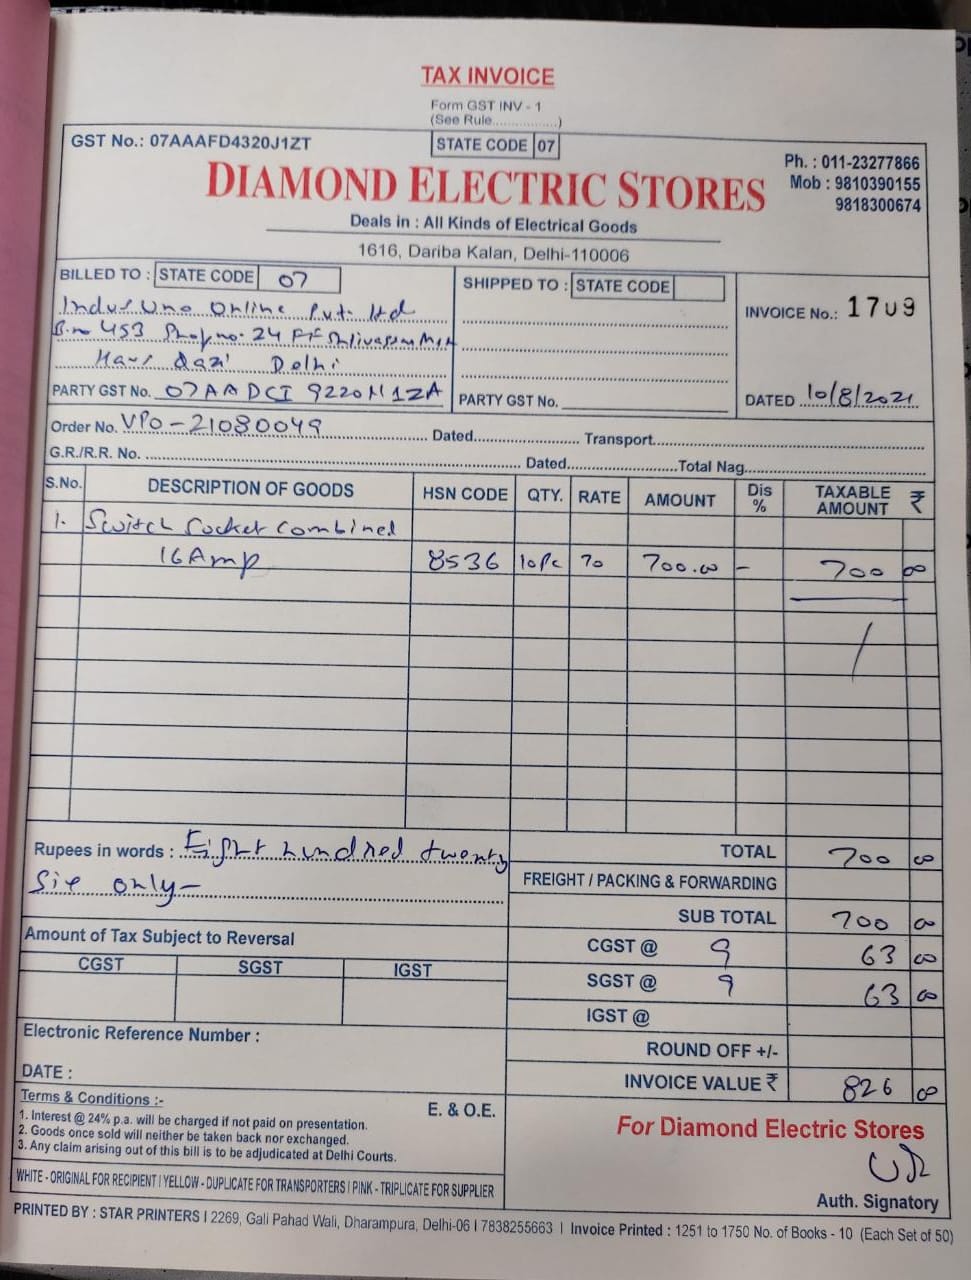 TAX INVOICE
Form GST INV - 1
(See Rule................)
GST No.: 07AAAFD4320J1ZT
STATE CODE 07
Ph. : 011-23277866
Mob : 9810390155
9818300674
DIAMOND ELECTRIC STORES
Deals in : All Kinds of Electrical Goods
1616, Dariba Kalan, Delhi-110006
BILLED TO : STATE CODE 07
SHIPPED TO : STATE CODE
INVOICE No.: 1709
Indus Uno Online Pvt. Ltd
B.no 453 Shop no. 24 FF
Hauz Qazi Delhi
PARTY GST No. 07AADCI9220M1ZA
PARTY GST No.
DATED 10/8/2021
Order No. VPO-21080049 Dated............. Transport.............
G.R./R.R. No. ............. Dated............. Total Nag.............
S.No. DESCRIPTION OF GOODS HSN CODE QTY. RATE AMOUNT Dis % TAXABLE AMOUNT ₹
1. Switch Socket Combined
16 Amp 8536 10Pc 70 700.00 - 700 00
Rupees in words : Eight hundred twenty
Six only-
TOTAL 700 00
FREIGHT / PACKING & FORWARDING
SUB TOTAL 700 00
Amount of Tax Subject to Reversal
CGST SGST IGST
CGST @ 9 63 00
SGST @ 9 63 00
IGST @
Electronic Reference Number :
ROUND OFF +/-
DATE :
INVOICE VALUE ₹ 826 00
Terms & Conditions :-
E. & O.E.
1. Interest @ 24% p.a. will be charged if not paid on presentation.
2. Goods once sold will neither be taken back nor exchanged.
3. Any claim arising out of this bill is to be adjudicated at Delhi Courts.
For Diamond Electric Stores
WHITE - ORIGINAL FOR RECIPIENT | YELLOW - DUPLICATE FOR TRANSPORTERS | PINK - TRIPLICATE FOR SUPPLIER
Auth. Signatory
PRINTED BY : STAR PRINTERS | 2269, Gali Pahad Wali, Dharampura, Delhi-06 | 7838255663 | Invoice Printed : 1251 to 1750 No. of Books - 10 (Each Set of 50)